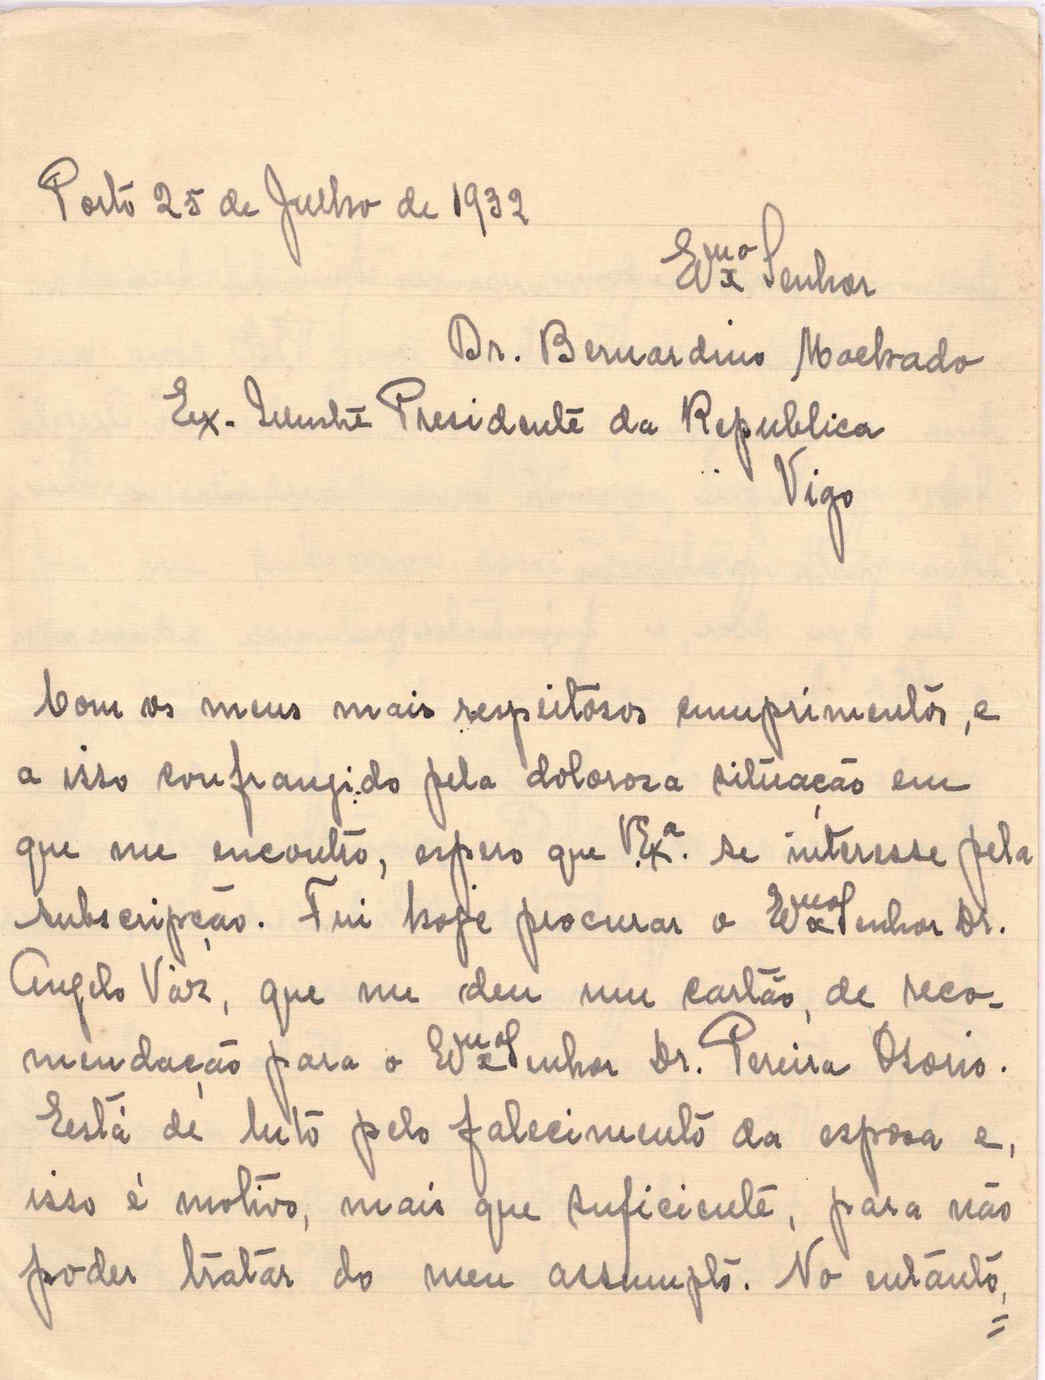 Porto 25 de Julho de 1932
Exmo Senhor
Dr. Bernardino Machado
Ex. Illustre Presidente da Republica
Vigo
Com os meus mais respeitosos cumprimentos, e
a isso confrangido pela dolorosa situação em
que me encontro, espero que V. Exª. se interesse pela
subscripção. Fui hoje procurar o Exmo Senhor Dr.
Angelo Vaz, que me deu um cartão, de reco-
mendação para o Exmo Senhor Dr. Pereira Osorio.
Está de luto pelo falecimento da esposa e,
isso é motivo, mais que suficiente, para não
poder tratar do meu assumpto. No entanto,
=